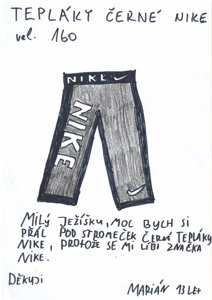 TEPLÁKY ČERNÉ NIKE
vel. 160
NIKE
NIKE
MILÝ JEŽÍŠKU, MOC BYCH SI
PŘÁL POD STROMEČEK ČERNÉ TEPLÁKY
NIKE, PROTOŽE SE MI LÍBÍ ZNAČKA
NIKE.
DĚKUJI
MARIÁN 13 LET